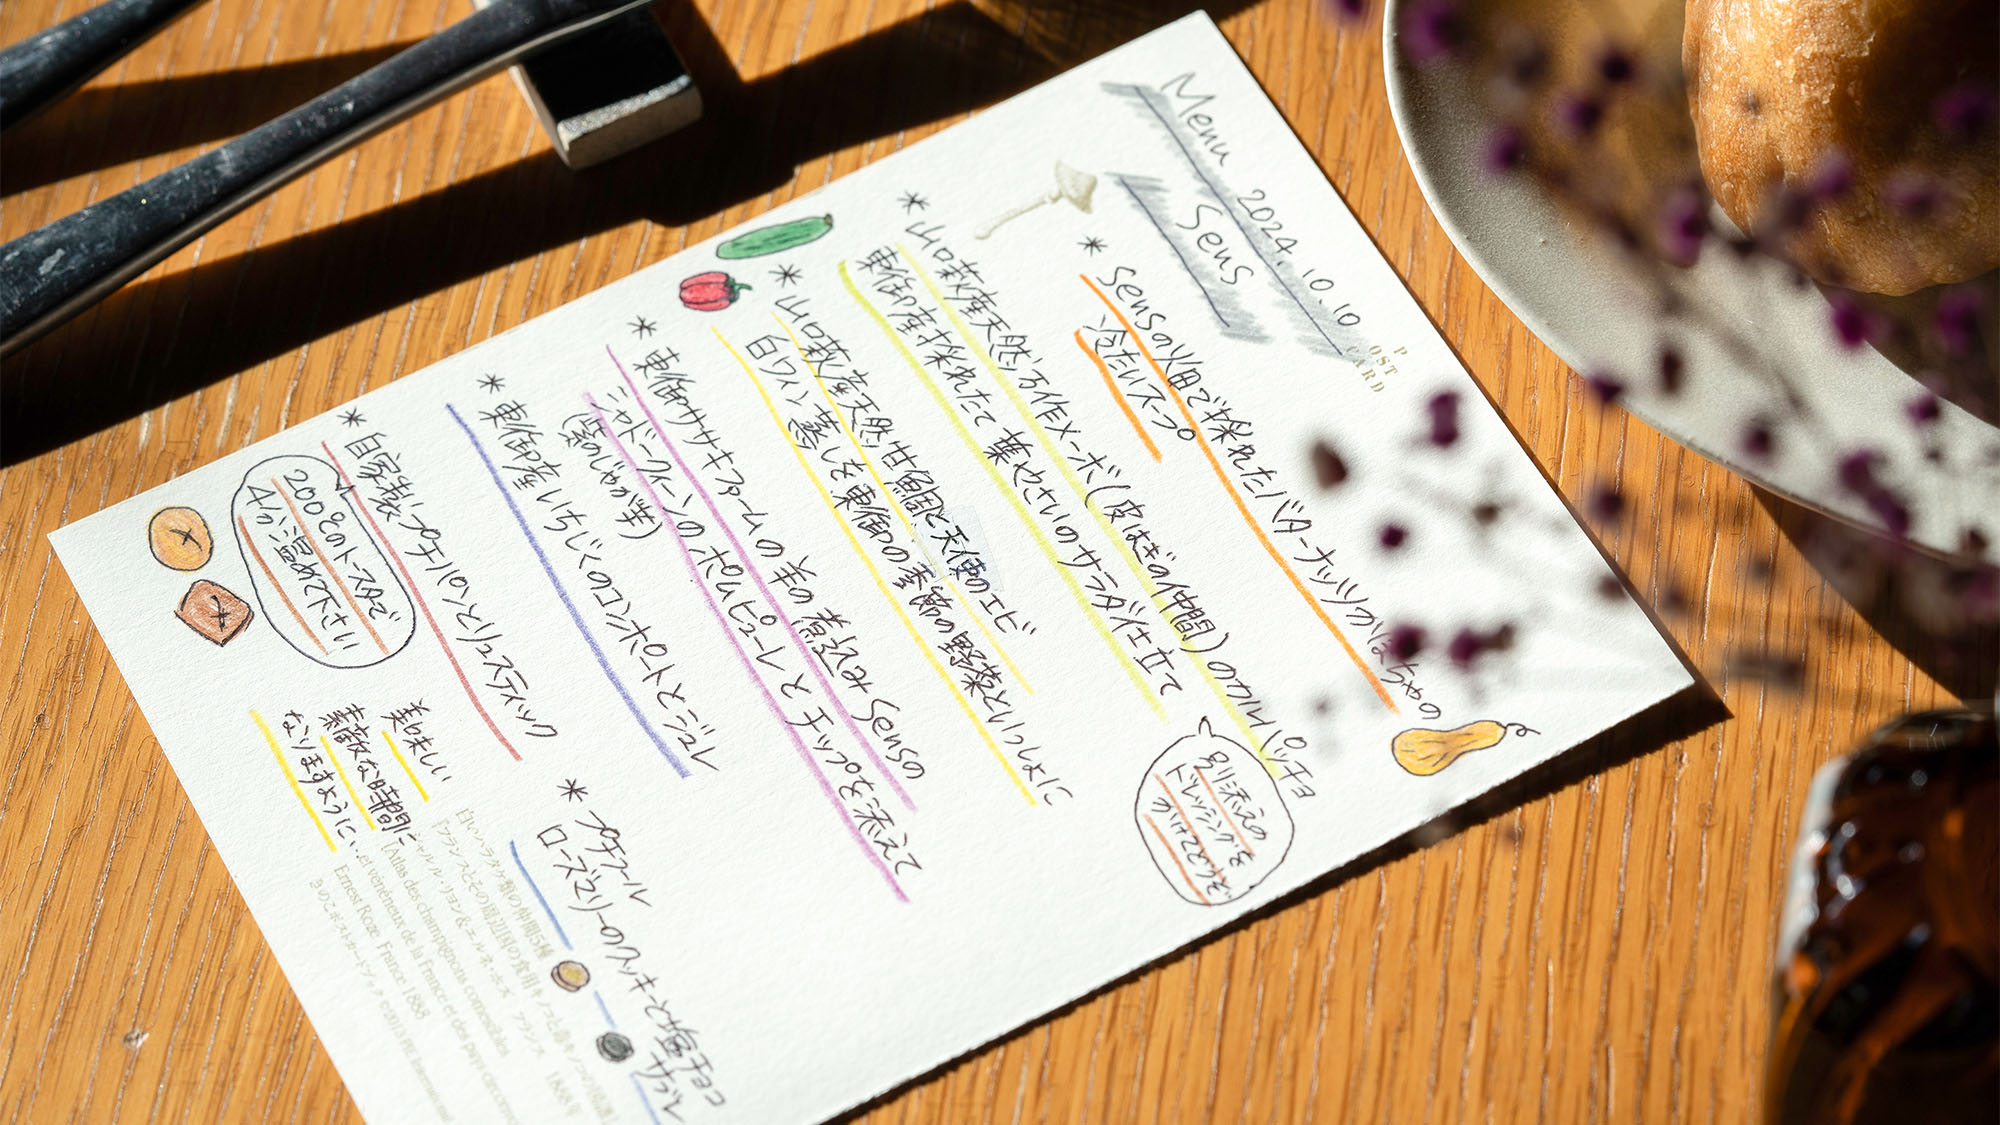 Menu 2024.10.10
Sens
POST CARD
* Sensの畑で採れたバターナッツかぼちゃの
冷たいスープ
* 山口萩産天然万作メーボ(皮はぎの仲間)のカルパッチョ
東御産採れたて葉やさいのサラダ仕立て
別添えの
ドレッシング
* 山口萩産天然甘鯛と天使のエビ
白ワイン蒸しを東御の季節の野菜といっしょに
* 東御ササキファームの羊の煮込み Sensの
シャドークイーンのポムピューレとチップを添えて
(紫のじゃが芋)
* 東御産いちじくのコンポートとジュレ
* 自家製プチパンとリュスティック
200℃のトースタで
4分温めて下さい
* プチフール
ローズマリーのクッキーと塩チョコ
美味しい
素敵な時間に
なりますように…
白いハラタケ類の仲間5種
『フランスとその周辺国の食用キノコと毒キノコの
シャルル・リヨン&エルネ・ホズ フランス 1888年
Atlas des champignons comestibles
et vénéneux de la France et des pays
Ernest Roze France 1888
きのこポストカードブック ©2013 PIE International